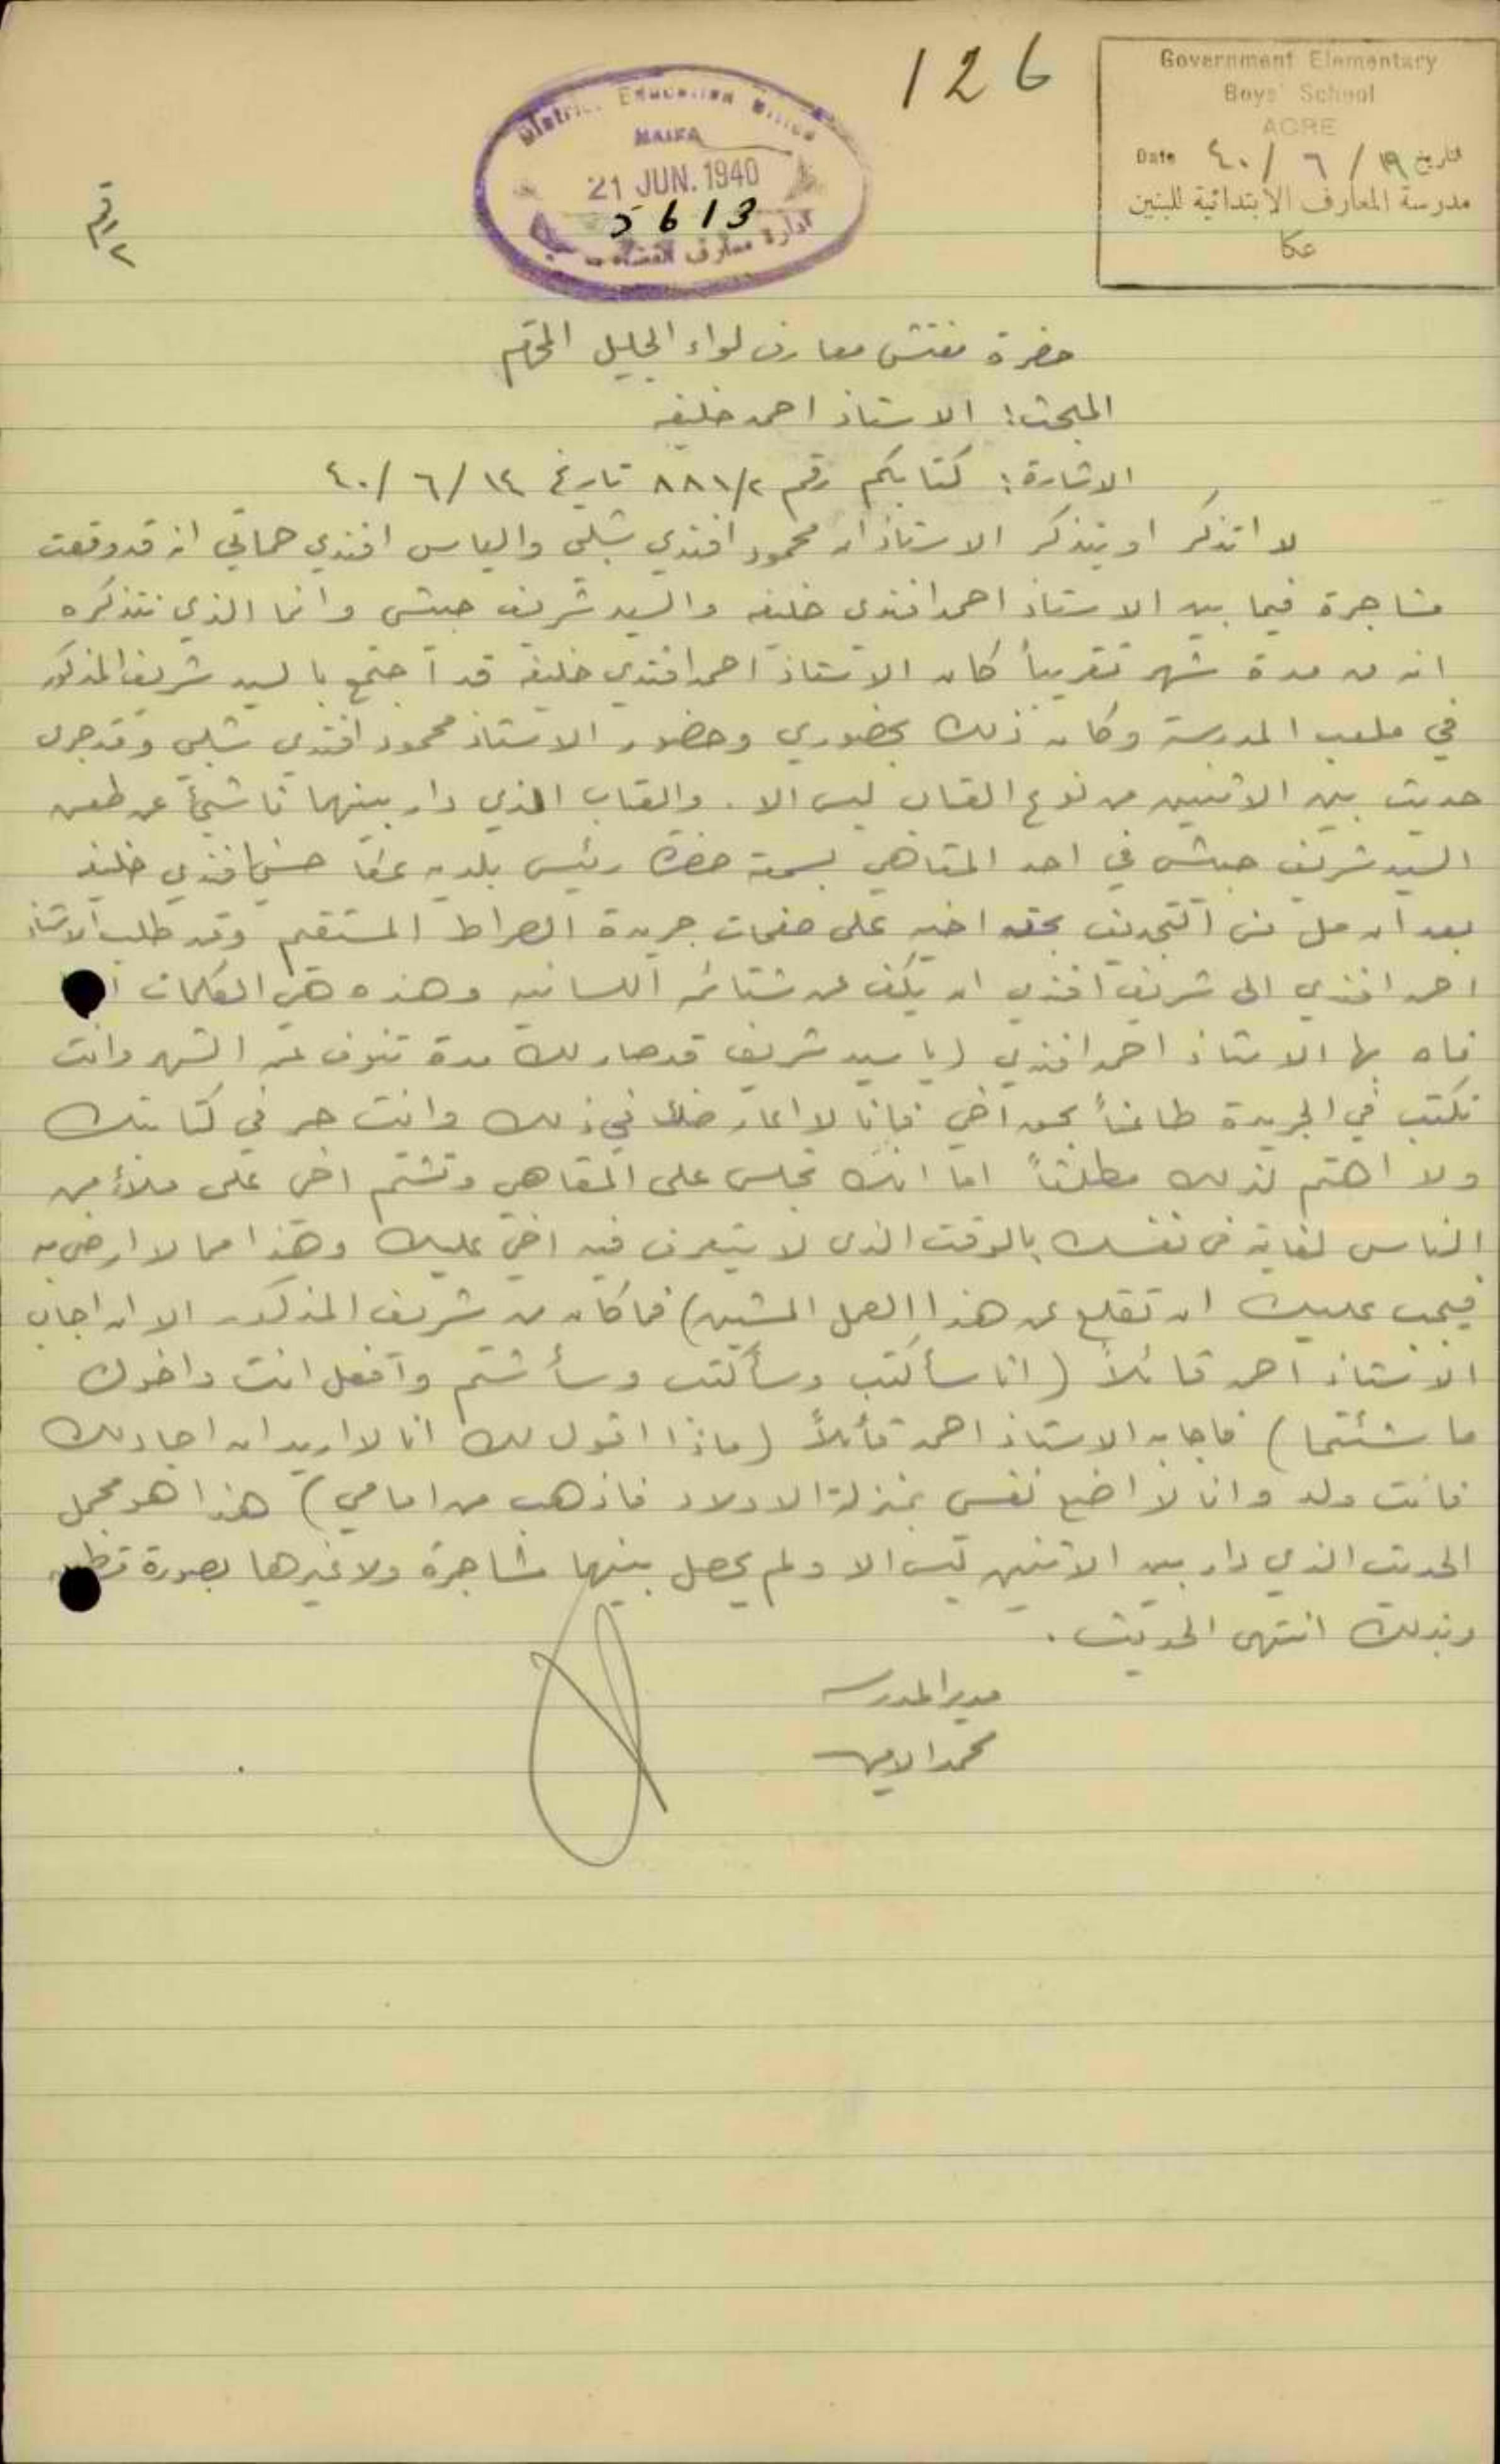 126
Government Elementary
Boys' School
ACRE
Date ٤٠/ ٦ / ١٩ تاريخ
مدرسة المعارف الابتدائية للبنين
عكا
District Education Office
HAIFA
21 JUN. 1940
5613
ادارة معارف
حضرة مفتش معارف لواء الجليل المحترم
المبحث: الاستاذ احمد خليفه
الاشارة: كتابكم رقم ٨٨١/٢ تاريخ ١٤ /٦ /٤٠
لا اتذكر او يتذكر الاستاذان محمود افندي شبلي والياس افندي حماتي انه قد وقعت
مشاجرة فيما بين الاستاذ احمد افندي خليفه والسيد شريف حبشي وانما الذي نتذكره
انه من مدة شهر تقريباً كان الاستاذ احمد افندي خليفة قد اجتمع بالسيد شريف المذكور
في ملعب المدرسة وكان ذلك بحضوري وحضور الاستاذ محمود افندي شبلي وقد جرى
حديث بين الاثنين من نوع العتاب ليس الا. والعتاب الذي دار بينهما ناشئ عن طعن
السيد شريف حبشي في احد المقاهي بسمعة حضرة رئيس بلدية عكا حسني افندي خليفه
بعد ان مل من التجديف بحقه اخيه على صفحات جريدة الصراط المستقيم وقد طلب الاستاذ
احمد افندي الى شريف افندي ان يكف عن شتائمه اللسانيه وهذه هي الكلمات
فاه بها الاستاذ احمد افندي (يا سيد شريف قد صار لك مدة تنوف عن الشهر وانت
تكتب في الجريدة طاعناً بحق اخي فانا لا اعارضك في ذلك وانت حر في كتابتك
ولا اهتم لذلك مطلقاً اما انك تجلس على المقاهي وتشتم اخي على ملأ من
الناس لغاية في نفسك بالوقت الذي لا يتعرف فيه اخي عليك وهذا مما لا ارضى به
فيجب عليك ان تقلع عن هذا العمل المشين) فما كان من شريف المذكور الا ان اجاب
الاستاذ احمد قائلاً (انا سأكتب وسأكتب وسأشتم وافعل انت واخوك
ما شئتما) فاجابه الاستاذ احمد قائلاً (ماذا اقول لك انا لا اريد ان اجادلك
فانت ولد وانا لا اضع نفسي بمنزلة الاولاد فاذهب من امامي) هذا هو مجمل
الحديث الذي دار بين الاثنين ليس الا ولم يحصل بينهما مشاجرة ولا غيرها بصورة
وبذلك انتهى الحديث.
مدير المدرسه
محمد الامين